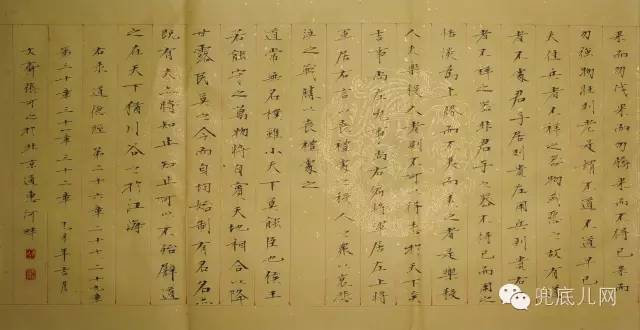 果而勿伐果而勿驕果而不得已果而
勿强物壯則老是謂不道不道早已
夫佳兵者不祥之器物或惡之故有道
者不處君子居則貴左用兵則貴右兵
者不祥之器非君子之器不得已而用之
恬淡爲上勝而不美而美之者是樂殺
人夫樂殺人者則不可以得志於天下矣
吉事尚左凶事尚右偏將軍居左上將
軍居右言以喪禮處之殺人之衆以哀悲
泣之戰勝以喪禮處之
道常無名樸雖小天下莫能臣也侯王
若能守之萬物將自賓天地相合以降
甘露民莫之令而自均始制有名名亦
既有夫亦將知止知止可以不殆譬道
之在天下猶川谷之於江海
右录道德經第二十六章二十七二十九章
第三十章三十一章三十二章 年 月
文齋張可之於北京通惠河畔
兜底儿网